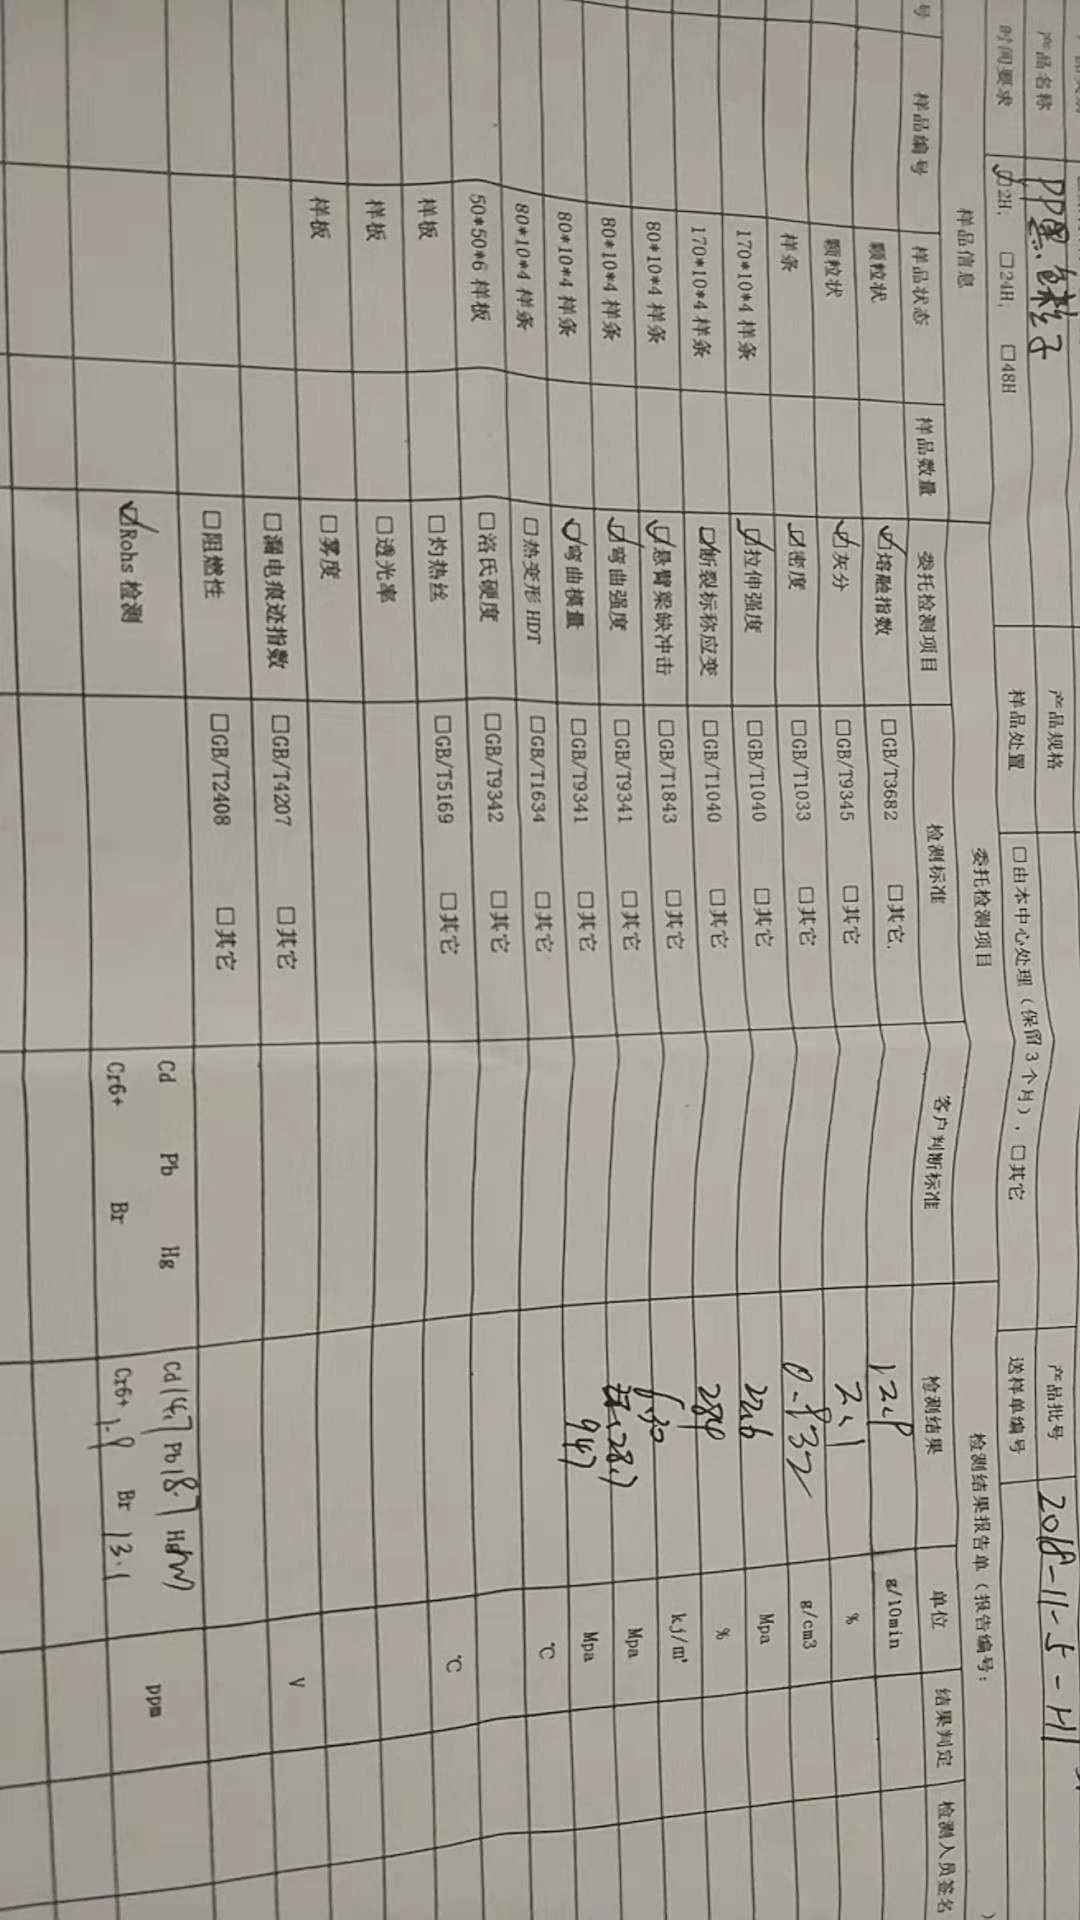 产品名称 PP黑色粒子 产品规格 产品批号 2018-11-5-H1
时间要求 ☑2H, □24H, □48H 样品处置 □由本中心处理（保留3个月）, □其它 送样单编号
样品信息 委托检测项目 检测结果报告单（报告编号: ）
号 样品编号 样品状态 样品数量 委托检测项目 检测标准 客户判断标准 检测结果 单位 结果判定 检测人员签名
颗粒状 ☑熔融指数 □GB/T3682 □其它. 12.8 g/10min
颗粒状 ☑灰分 □GB/T9345 □其它 2.1 %
样条 ☑密度 □GB/T1033 □其它 0.932 g/cm3
170*10*4 样条 ☑拉伸强度 □GB/T1040 □其它 22.6 Mpa
170*10*4 样条 ☑断裂标称应变 □GB/T1040 □其它 284 %
80*10*4 样条 ☑悬臂梁缺冲击 □GB/T1843 □其它 6.30 kj/m²
80*10*4 样条 ☑弯曲强度 □GB/T9341 □其它 28.7 Mpa
80*10*4 样条 ☑弯曲模量 □GB/T9341 □其它 947 Mpa
80*10*4 样条 □热变形 HDT □GB/T1634 □其它 ℃
50*50*6 样板 □洛氏硬度 □GB/T9342 □其它
样板 □灼热丝 □GB/T5169 □其它 ℃
样板 □透光率
样板 □雾度
□漏电痕迹指数 □GB/T4207 □其它 V
□阻燃性 □GB/T2408 □其它
☑Rohs 检测 Cd Pb Hg Cd 14.7 Pb 18.7 Hg ppm
Cr6+ Br Cr6+ 1.9 Br 13.1